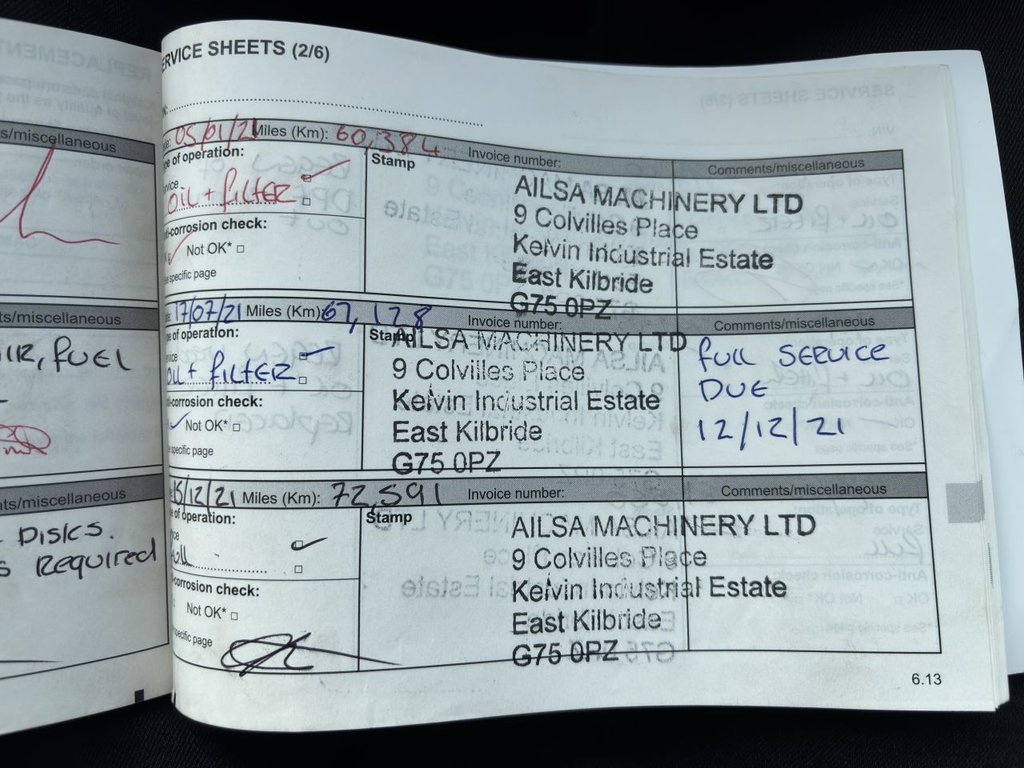 ERVICE SHEETS (2/6)
05/01/21 Miles (Km): 60,384 Invoice number: Comments/miscellaneous
e of operation:
Stamp
OIL + FILTER
AILSA MACHINERY LTD
9 Colvilles Place
Kelvin Industrial Estate
East Kilbride
G75 0PZ
-corrosion check:
Not OK*
specific page
17/07/21 Miles (Km) 67,178 Invoice number: Comments/miscellaneous
e of operation:
Stamp
OIL + FILTER
AILSA MACHINERY LTD
9 Colvilles Place
Kelvin Industrial Estate
East Kilbride
G75 0PZ
FULL SERVICE
DUE
12/12/21
-corrosion check:
Not OK*
specific page
15/12/21 Miles (Km): 72,591 Invoice number: Comments/miscellaneous
e of operation:
Stamp
AILSA MACHINERY LTD
9 Colvilles Place
Kelvin Industrial Estate
East Kilbride
G75 0PZ
-corrosion check:
Not OK*
specific page
6.13
ts/miscellaneous
ts/miscellaneous
IR, FUEL
ts/miscellaneous
DISKS.
S REQUIRED